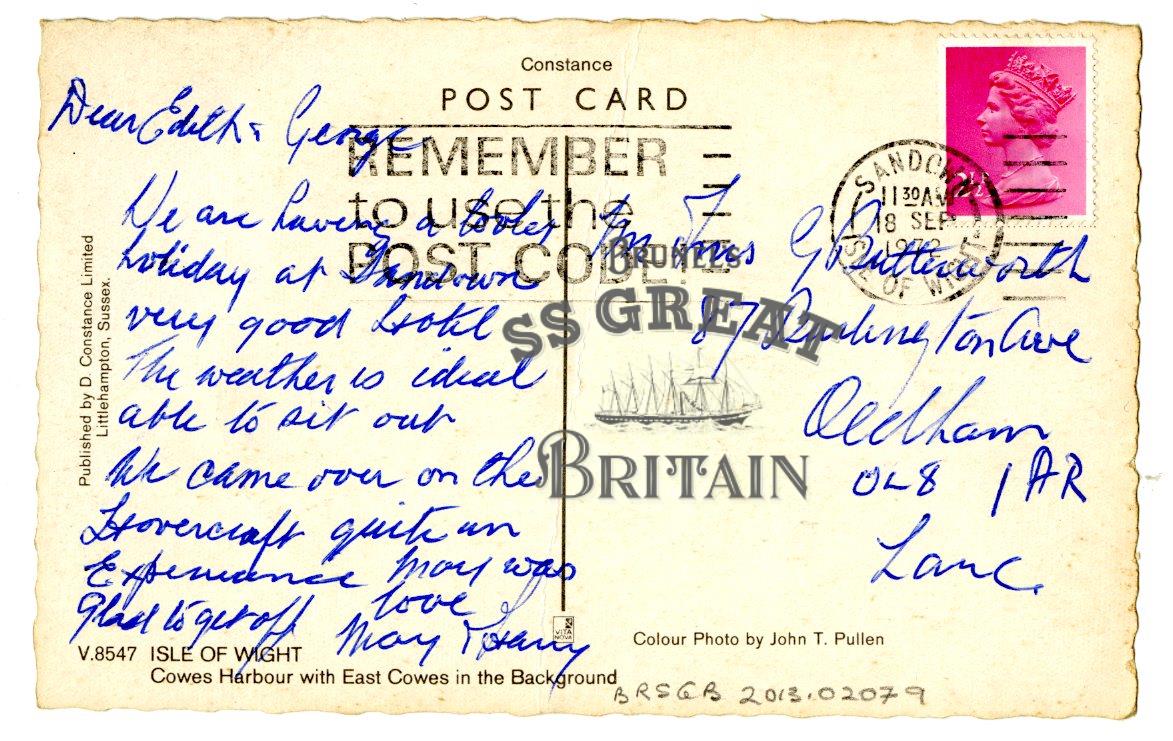 Constance
POST CARD
Dear Edith & George
We are having a lovely
holiday at Sandown
very good Hotel
The weather is ideal
able to sit out
We came over on the
Hovercraft quite an
Experiance May was
Glad to get off love
May & Harry
REMEMBER
to use the
POST CODE!
SANDOWN
11 30 AM
18 SEP
ISLE OF WIGHT
2½P
Mr & Mrs G Butterworth
87 Ave
Oldham
OL8 1AR
Lanc.
BRUNEL'S
SS GREAT
BRITAIN
Published by D. Constance Limited
Littlehampton, Sussex.
VITA
NOVA
Colour Photo by John T. Pullen
V.8547 ISLE OF WIGHT
Cowes Harbour with East Cowes in the Background
BRSGB 2013.02079